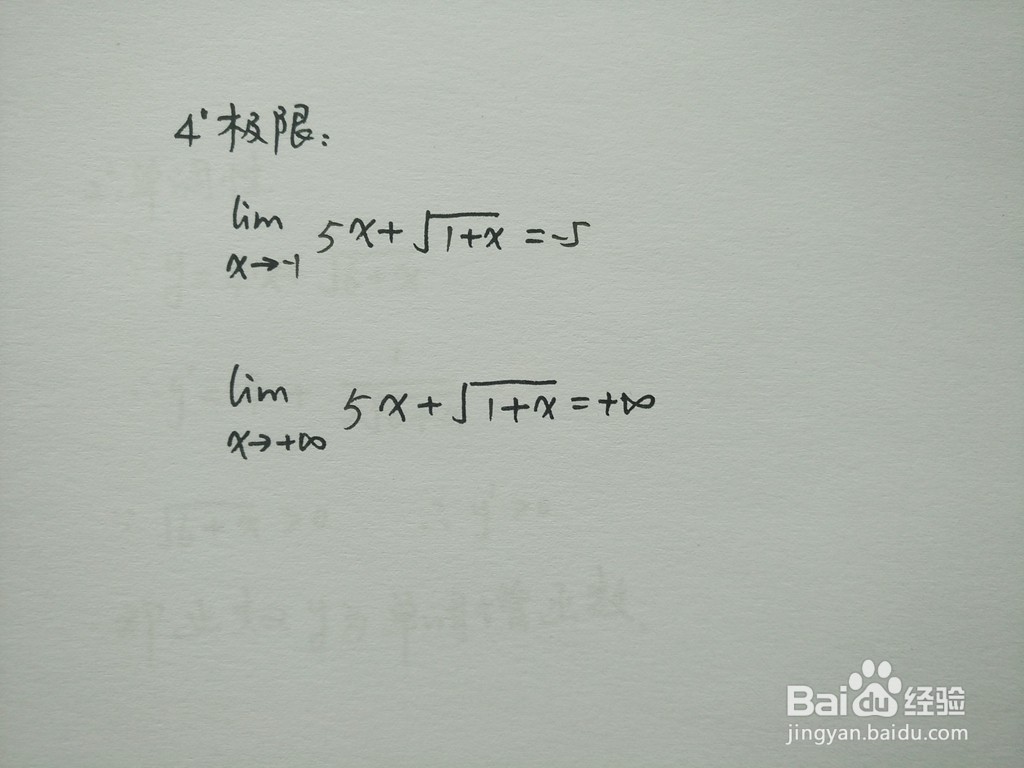 4° 极限:
lim 5x+√1+x =-5
x→-1
lim 5x+√1+x =+∞
x→+∞
Baidu经验
jingyan.baidu.com